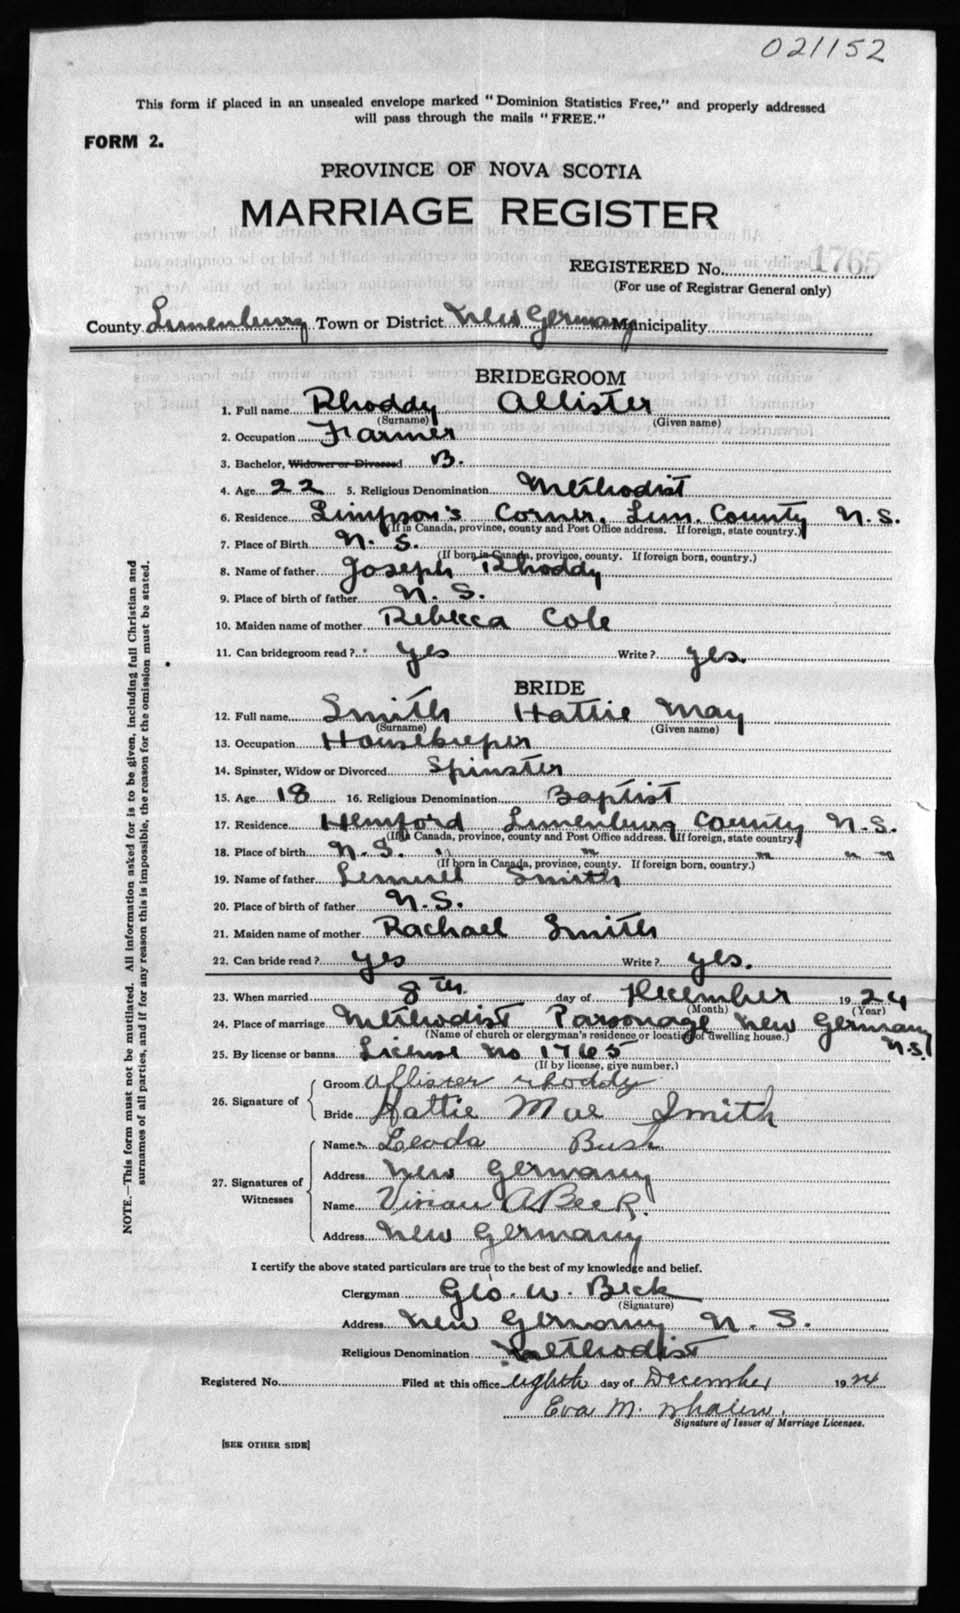 021152
This form if placed in an unsealed envelope marked "Dominion Statistics Free," and properly addressed
will pass through the mails "FREE."
FORM 2.
PROVINCE OF NOVA SCOTIA
MARRIAGE REGISTER
REGISTERED No. 1765
(For use of Registrar General only)
County Lunenburg Town or District New Germany Municipality
BRIDEGROOM
1. Full name Rhoddy Allister
(Surname) (Given name)
2. Occupation Farmer
3. Bachelor, Widower or Divorced B.
4. Age 22 5. Religious Denomination Methodist
6. Residence Simpson's Corner, Lun. County N.S.
(If in Canada, province, county and Post Office address. If foreign, state country.)
7. Place of Birth N. S.
(If born in Canada, province, county. If foreign born, country.)
8. Name of father Joseph Rhoddy
9. Place of birth of father N. S.
10. Maiden name of mother Rebecca Cole
11. Can bridegroom read? yes Write? yes.
BRIDE
12. Full name Smith Hattie May
(Surname) (Given name)
13. Occupation Housekeeper
14. Spinster, Widow or Divorced Spinster
15. Age 18 16. Religious Denomination Baptist
17. Residence Hemford Lunenburg County N.S.
(If in Canada, province, county and Post Office address. If foreign, state country.)
18. Place of birth N.S. " " " " "
(If born in Canada, province, county. If foreign born, country.)
19. Name of father Lemuel Smith
20. Place of birth of father N.S.
21. Maiden name of mother Rachael Smith
22. Can bride read? yes Write? yes.
23. When married 8th day of December 1924
(Month) (Year)
24. Place of marriage Methodist Parsonage New Germany N.S.
(Name of church or clergyman's residence or location of dwelling house.)
25. By license or banns License No 1765
(If by license, give number.)
26. Signature of
Groom Allister rhoddy
Bride Hattie Mae Smith
27. Signatures of Witnesses
Name Leoda Bush
Address New Germany
Name Vivian A Beck.
Address New Germany
I certify the above stated particulars are true to the best of my knowledge and belief.
Clergyman Geo. W. Beck
(Signature)
Address New Germany N. S.
Religious Denomination Methodist
Registered No. Filed at this office eighth day of December 1924
Eva M.
Signature of Issuer of Marriage Licenses.
[SEE OTHER SIDE]
NOTE.—This form must not be mutilated. All information asked for is to be given, including full Christian and
surnames of all parties, and if for any reason this is impossible, the reason for the omission must be stated.